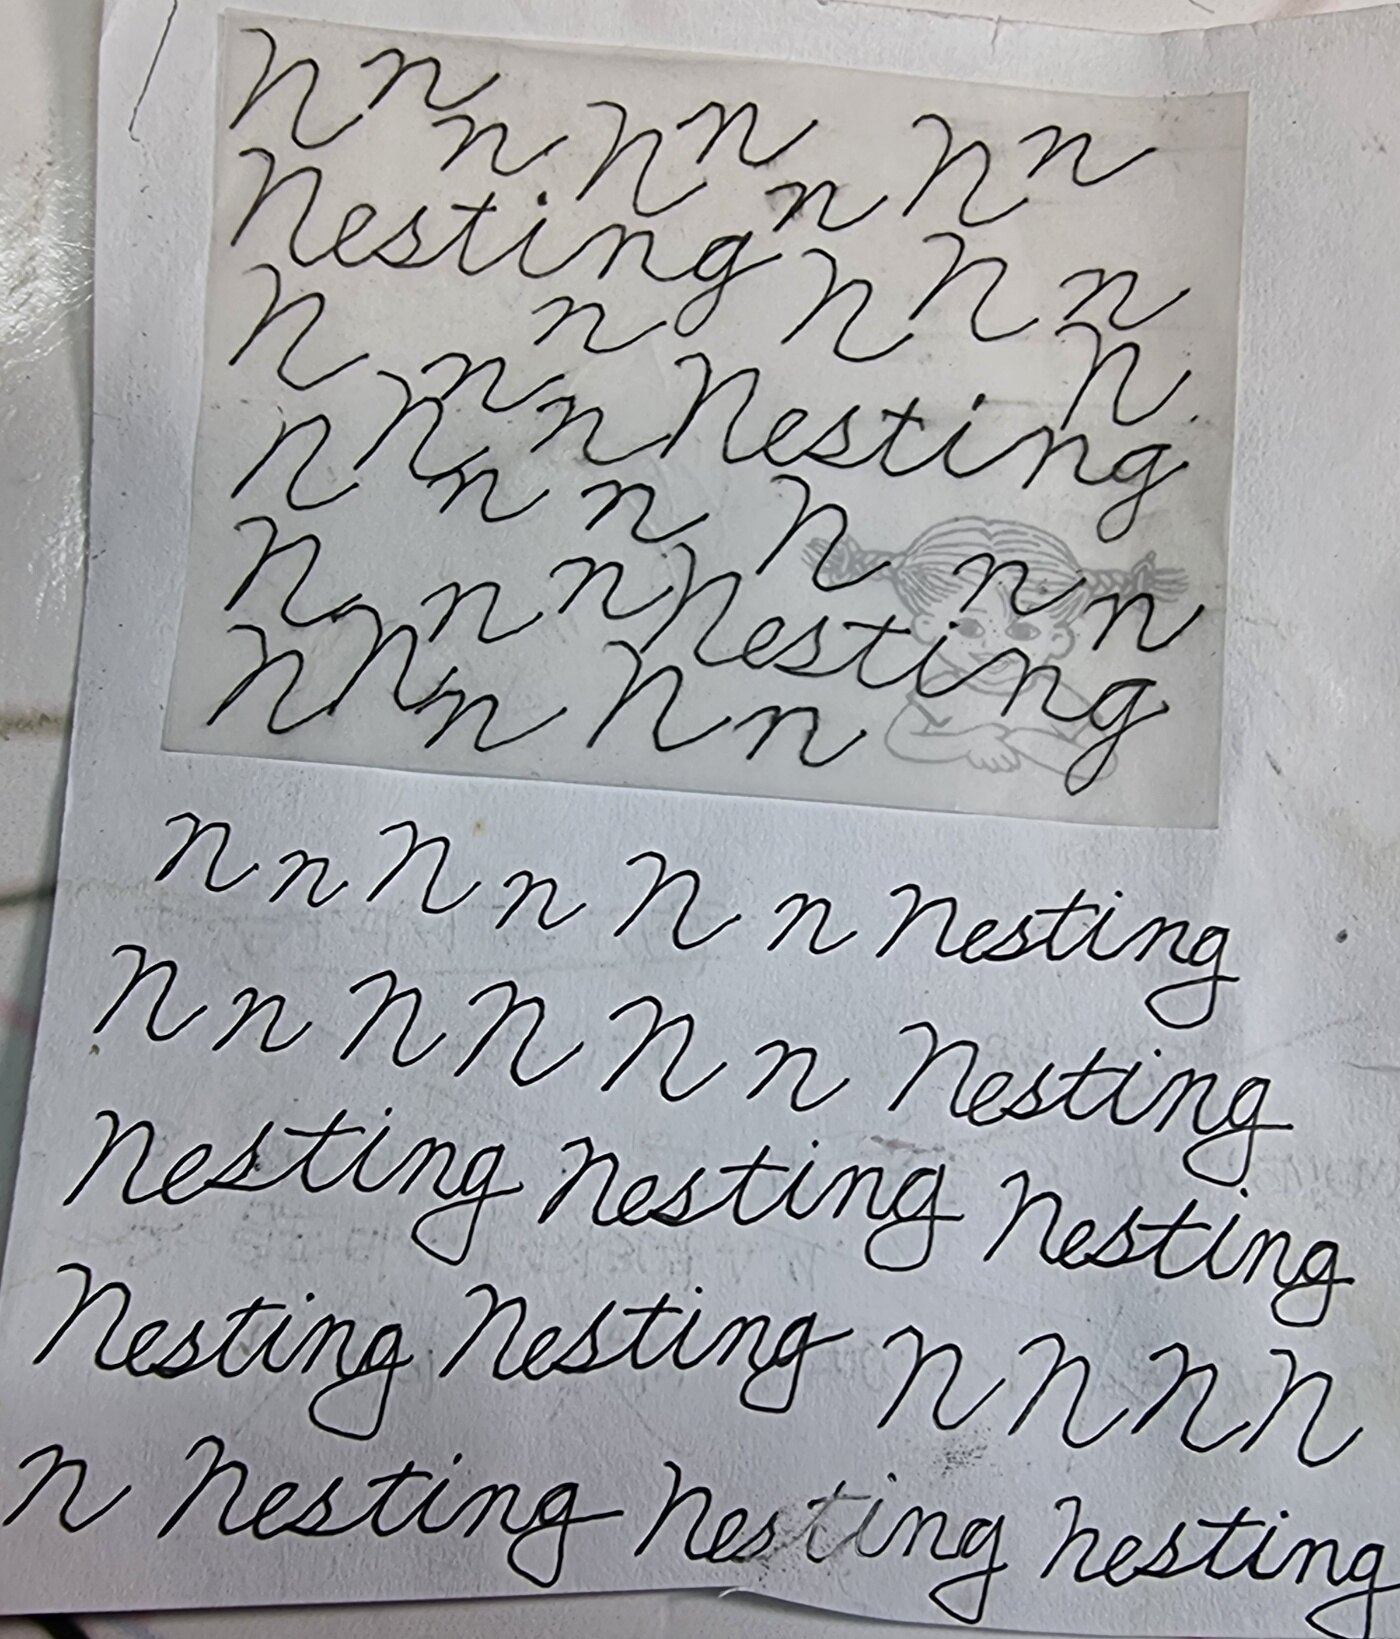 N n n N n N n
Nesting n
N n N N n
n N n n Nesting N
N n n N n n
N n n Nesting
N N n N n
N n N n N n Nesting
N n N N N n Nesting
Nesting Nesting Nesting
Nesting Nesting N N N N
n Nesting Nesting Nesting